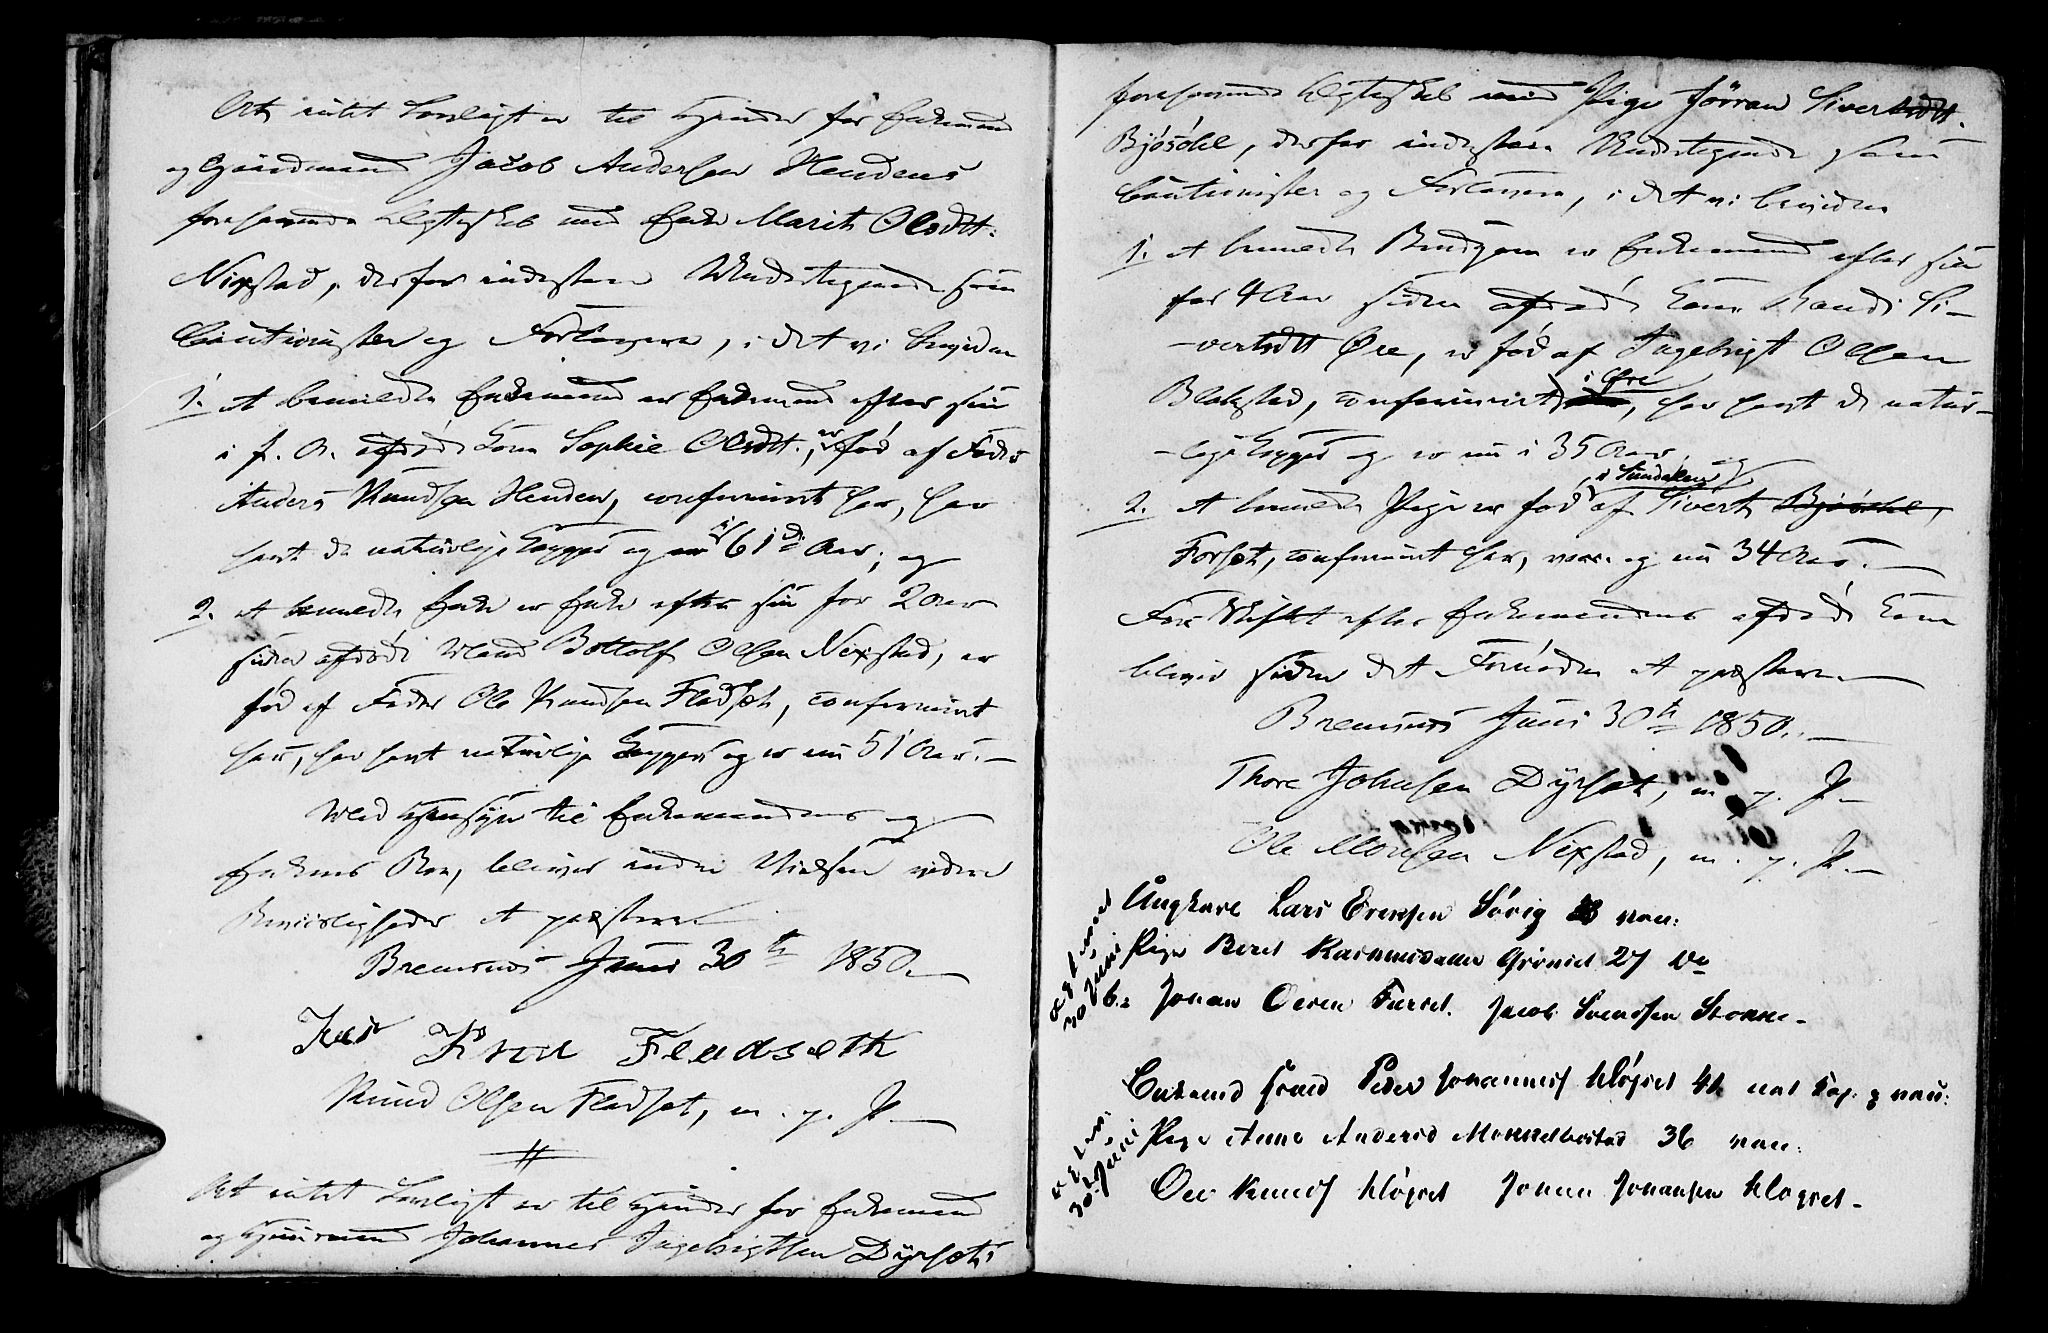 At intet Lovligt er til Hinder for Enkemand
og Gaardmand Jacob Andersen Hendens
forehavende Ægteskab med Enke Marith Olsdtt.
Nixstad, derfor indestaae Undertegnede som
Cautionister og Forlovere, i det vi bevidne
1. At bemeldte Enkemand er Enkemand efter sin
i f. A. afdøde Kone Sophie Olsdtt., er fød af Fader
Anders Knudsen Henden, confirmeret her, har
havt de naturlige Kopper og er i 61de Aar; og
2. at bemeldte Enke er Enke efter sin for 2 Aar
siden afdøde Mand Bottolf Olsen Nixstad, er
fød af Fader Ole Knudsen Fladset, confirmeret
her, har havt naturlige Kopper og er nu 51 Aar. —
Med Hensyn til Enkemandens og
Enkens Boe, bliver inden Vielsen videre
Beviisligheder at præstere
Bremsnes Juni 30th 1850. —
Knud Fladsæth
Knud Olsen Fladset, m. p. P. —
#
At intet Lovligt er til Hinder for Enkemand
og Huusmand Johannes Ingebrigtsen Dyrsets
forehavende Ægteskab med Pige Jörran Sivertsdtt.
Bjösdhl, derfor indestaae Undertegnede som
Cautionister og Forlovere, i det vi bevidne
1. at bemeldte Brudgom er Enkemand efter sin
for 4 Aar siden afdøde Kone Randi Si-
-vertsdtt Øre, er fød af Ingebrigt Olsen
Blakstad, confirmeret i Øre, har havt de natur-
-lige Kopper og er nu i 35 Aar, og
2. At bemeldte Pige er fød i Sundalen af Sivert Bjösdhl,
Forset, confirmeret her, vacc. og nu 34 Aar. —
For Skiftet efter Enkemandens afdøde Kone
bliver siden det Fornødne at præstere. —
Bremsnes Juni 30th 1850. —
Thore Johnsen Dyrset, m. p. P. —
Ole Monsen Nixstad, m. p. P. —
Ungkarl Lars Ericksen Sörig vac:
Pige Beret Rasmusdatter Grönset 27 do
Johan Olsen Furset. Jacob Svendsen Stokke -
30 Juni
Enkemd Grmd Peder Johannes Kløgset 42 nat Kop. & vac:
Pige Anne Andersd Monkelbostad 36 vac:
Ole Knuds Kløgset Johan Johansen Kløgset -
30 Juni